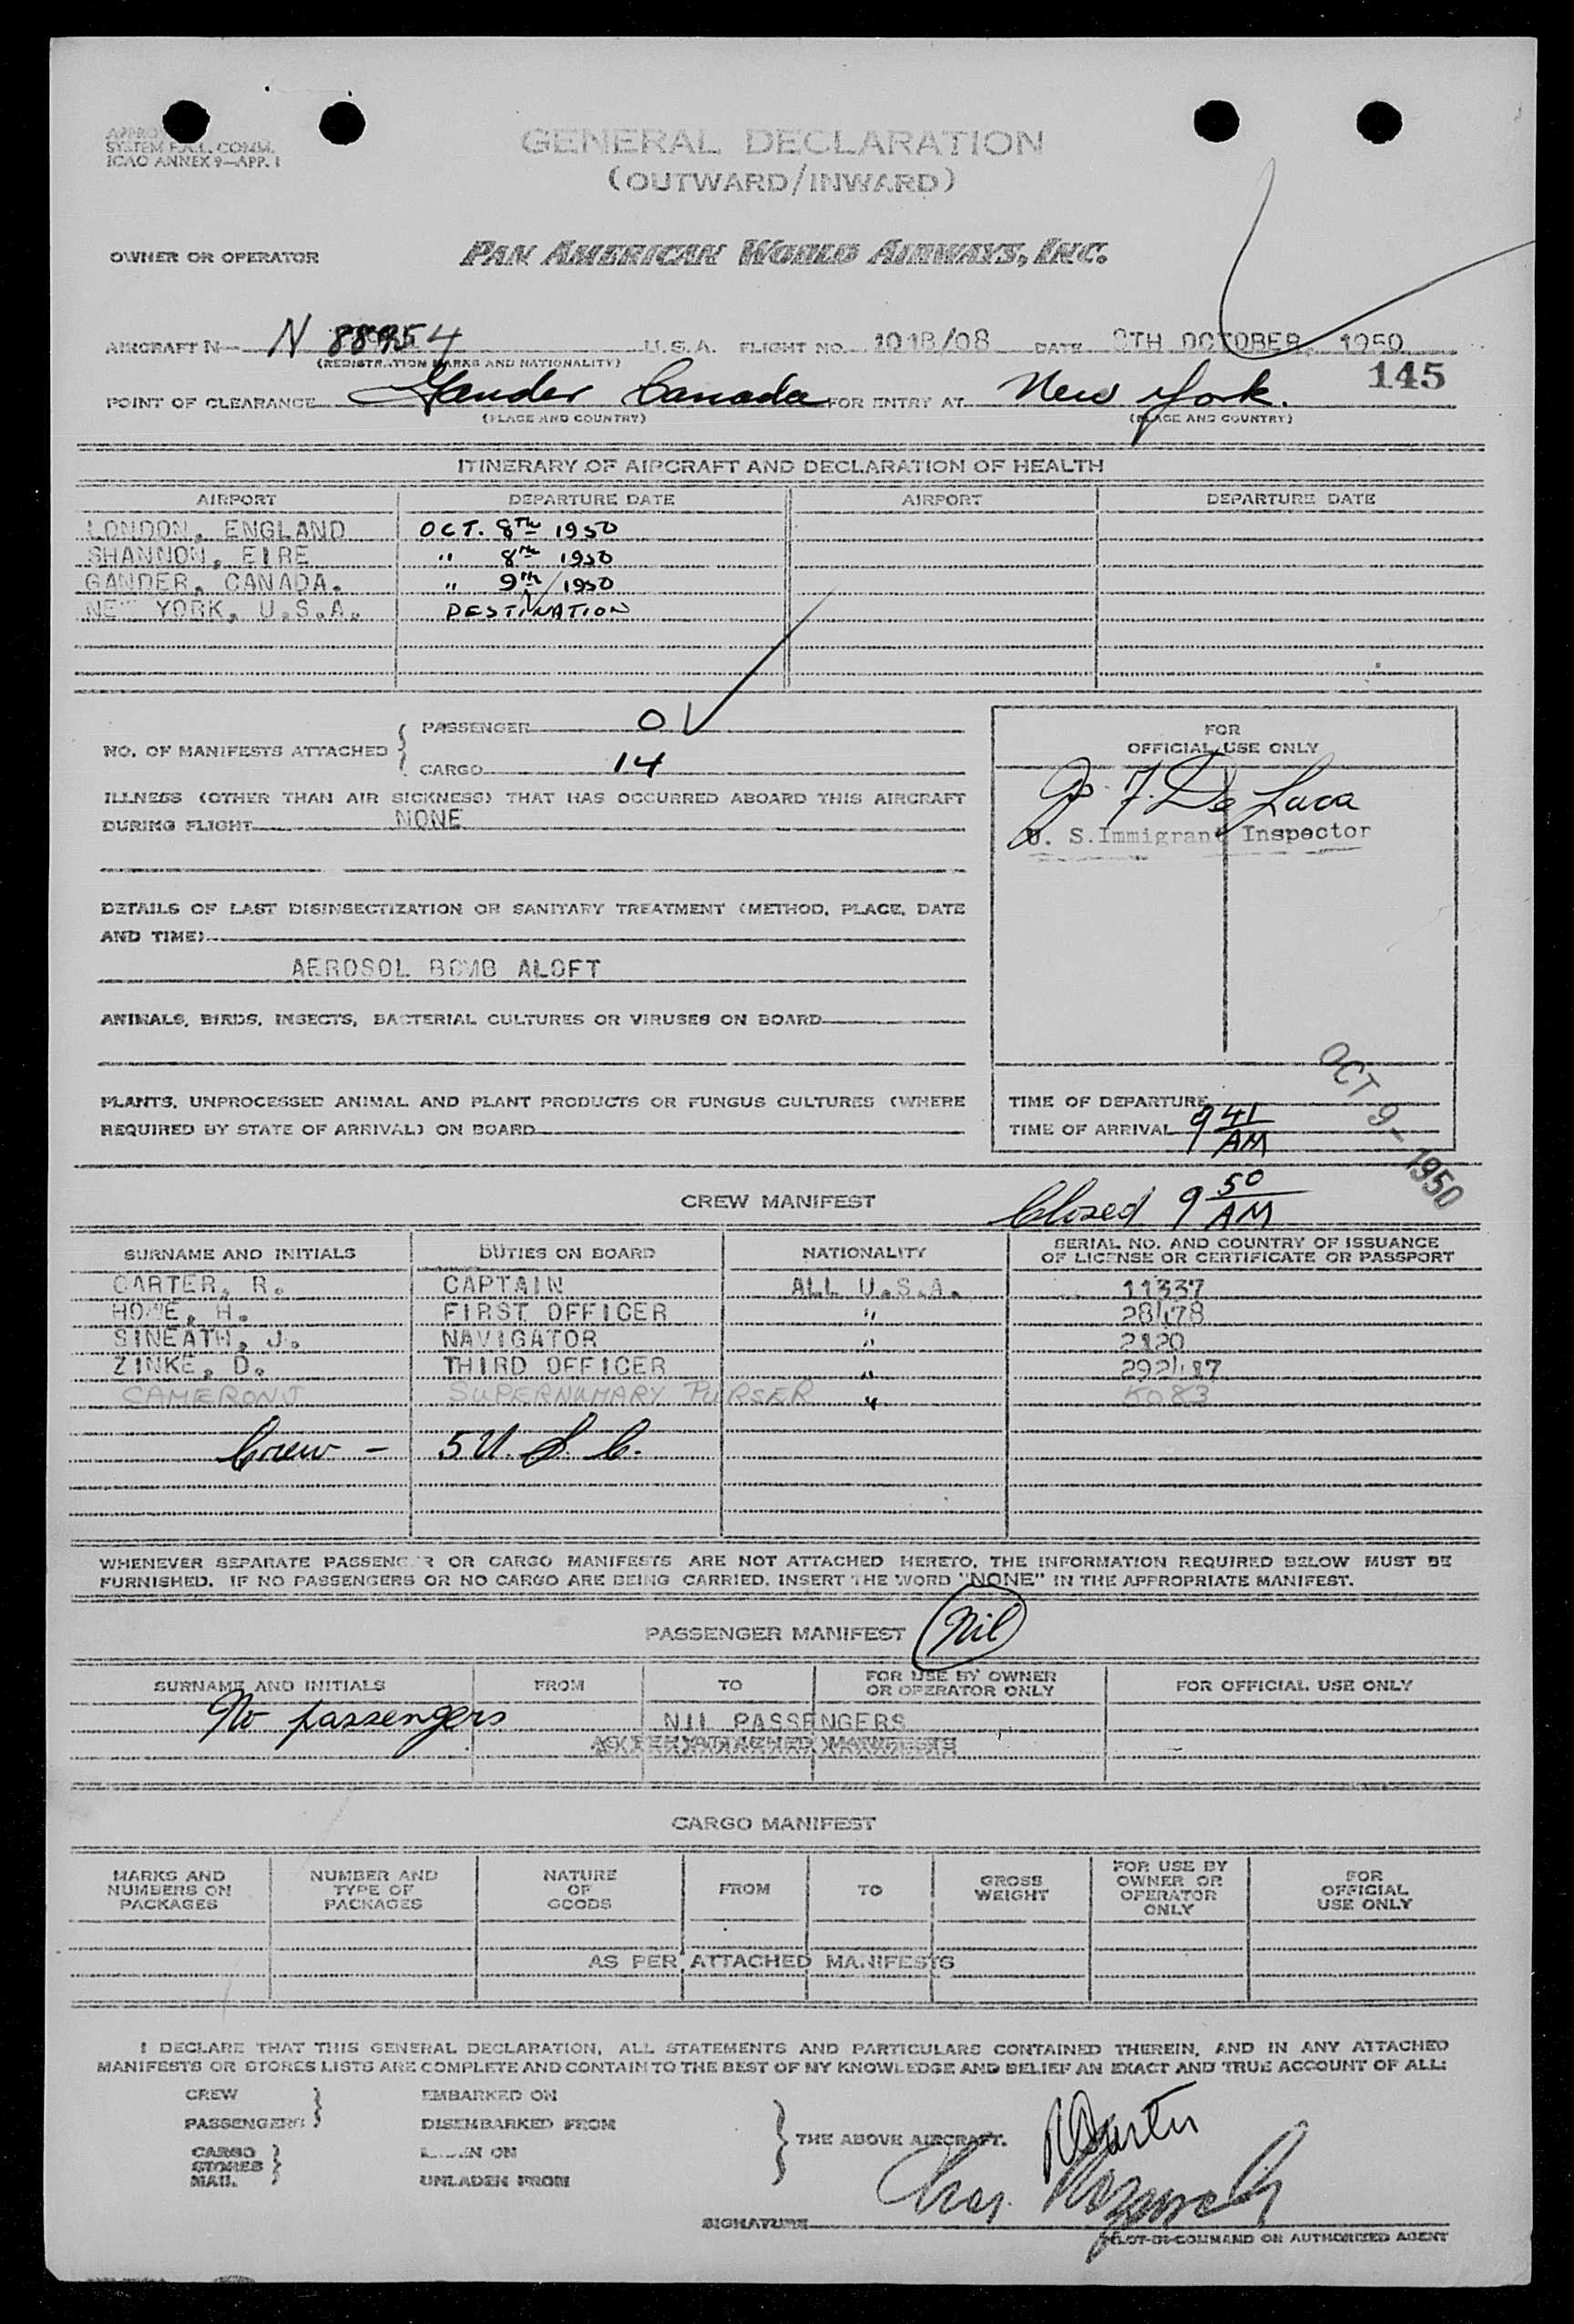 SYSTEM F.A.L. COMM.
ICAO ANNEX 9—APP. 1
GENERAL DECLARATION
(OUTWARD/INWARD)
OWNER OR OPERATOR PAN AMERICAN WORLD AIRWAYS, INC.
AIRCRAFT N— N 88954 U.S.A. FLIGHT NO. 101B/08 DATE 8TH OCTOBER, 1950
(REGISTRATION MARKS AND NATIONALITY)
145
POINT OF CLEARANCE Gander Canada FOR ENTRY AT New York.
(PLACE AND COUNTRY) (PLACE AND COUNTRY)
ITINERARY OF AIRCRAFT AND DECLARATION OF HEALTH
AIRPORT DEPARTURE DATE AIRPORT DEPARTURE DATE
LONDON, ENGLAND OCT. 8TH 1950
SHANNON, EIRE " 8TH 1950
GANDER, CANADA. " 9TH 1950
NEW YORK, U.S.A. DESTINATION
NO. OF MANIFESTS ATTACHED { PASSENGER 0
CARGO 14
FOR
OFFICIAL USE ONLY
U. S. Immigrant Inspector
ILLNESS (OTHER THAN AIR SICKNESS) THAT HAS OCCURRED ABOARD THIS AIRCRAFT
DURING FLIGHT NONE
DETAILS OF LAST DISINSECTIZATION OR SANITARY TREATMENT (METHOD, PLACE, DATE
AND TIME)
AEROSOL BOMB ALOFT
ANIMALS, BIRDS, INSECTS, BACTERIAL CULTURES OR VIRUSES ON BOARD
PLANTS, UNPROCESSED ANIMAL AND PLANT PRODUCTS OR FUNGUS CULTURES (WHERE
REQUIRED BY STATE OF ARRIVAL) ON BOARD
TIME OF DEPARTURE
TIME OF ARRIVAL 9 41 AM
OCT 9- 1950
CREW MANIFEST Closed 9 50 AM
SURNAME AND INITIALS DUTIES ON BOARD NATIONALITY SERIAL NO. AND COUNTRY OF ISSUANCE
OF LICENSE OR CERTIFICATE OR PASSPORT
CARTER, R. CAPTAIN ALL U.S.A. 11337
HOWE, H. FIRST OFFICER " 28478
SINEATH, J. NAVIGATOR " 2120
ZINKE, D. THIRD OFFICER "
CAMERON J SUPERNUMARY PURSER " 5083
Crew - 5 U.S.C.
WHENEVER SEPARATE PASSENGER OR CARGO MANIFESTS ARE NOT ATTACHED HERETO, THE INFORMATION REQUIRED BELOW MUST BE
FURNISHED. IF NO PASSENGERS OR NO CARGO ARE BEING CARRIED, INSERT THE WORD "NONE" IN THE APPROPRIATE MANIFEST.
PASSENGER MANIFEST Nil
SURNAME AND INITIALS FROM TO FOR USE BY OWNER
OR OPERATOR ONLY FOR OFFICIAL USE ONLY
No passengers NIL PASSENGERS
AS PER ATTACHED MANIFESTS
CARGO MANIFEST
MARKS AND
NUMBERS ON
PACKAGES
NUMBER AND
TYPE OF
PACKAGES
NATURE
OF
GOODS
FROM
TO
GROSS
WEIGHT
FOR USE BY
OWNER OR
OPERATOR
ONLY
FOR
OFFICIAL
USE ONLY
AS PER ATTACHED MANIFESTS
I DECLARE THAT THIS GENERAL DECLARATION, ALL STATEMENTS AND PARTICULARS CONTAINED THEREIN, AND IN ANY ATTACHED
MANIFESTS OR STORES LISTS ARE COMPLETE AND CONTAIN TO THE BEST OF MY KNOWLEDGE AND BELIEF AN EXACT AND TRUE ACCOUNT OF ALL:
CREW EMBARKED ON
PASSENGERS DISEMBARKED FROM
THE ABOVE AIRCRAFT.
CARGO ON
STORES
MAIL UNLADEN FROM
R Carter
SIGNATURE
PILOT-IN-COMMAND OR AUTHORIZED AGENT